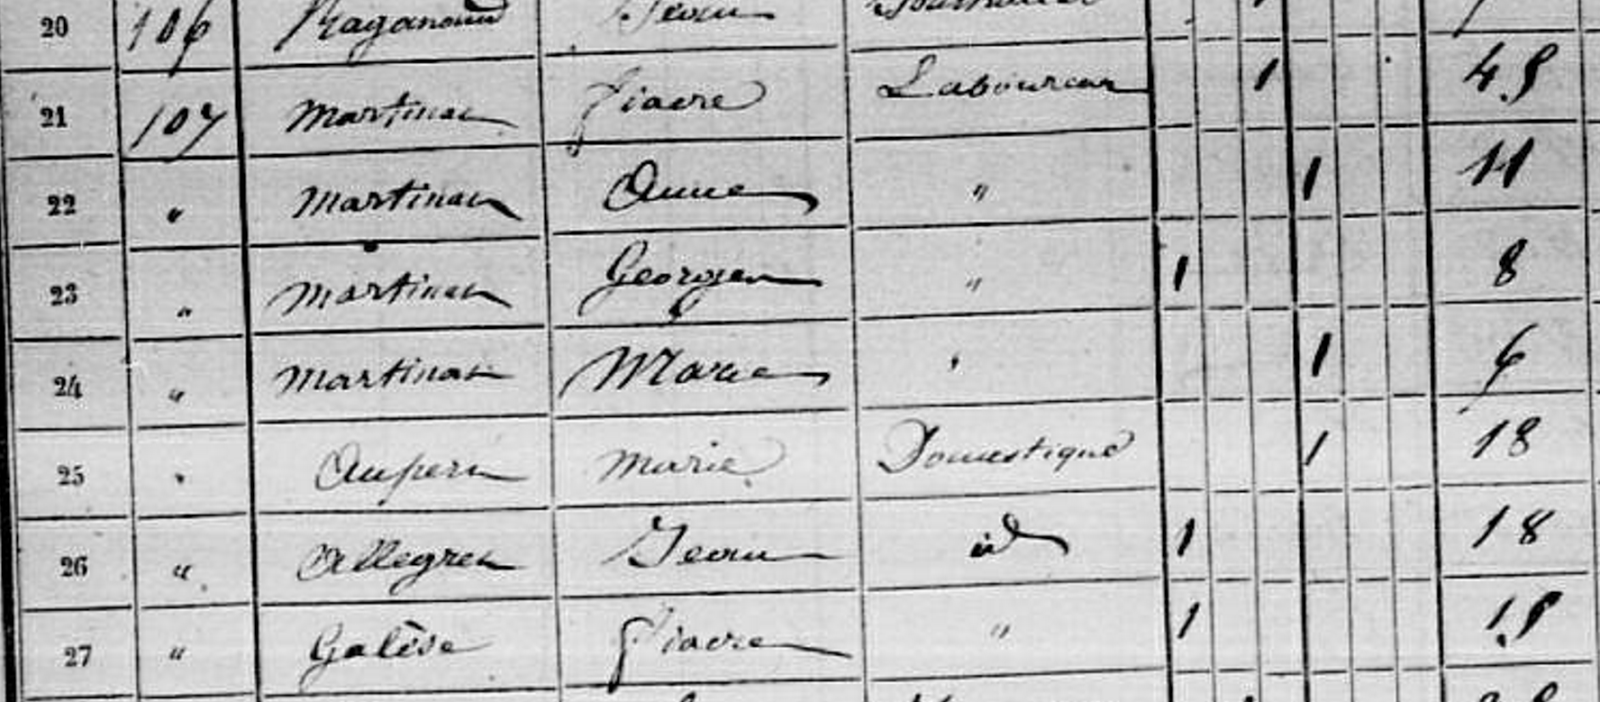 20 106 Raganaud Jean
21 107 Martinau Pierre Laboureur 1 45
22 " Martinau Anne " 1 11
23 " Martinau Georges " 1 8
24 " Martinau Marie " 1 6
25 " Marie Domestique 1 18
26 " Allegret Jean id 1 18
27 " Galèse Pierre " 1 15